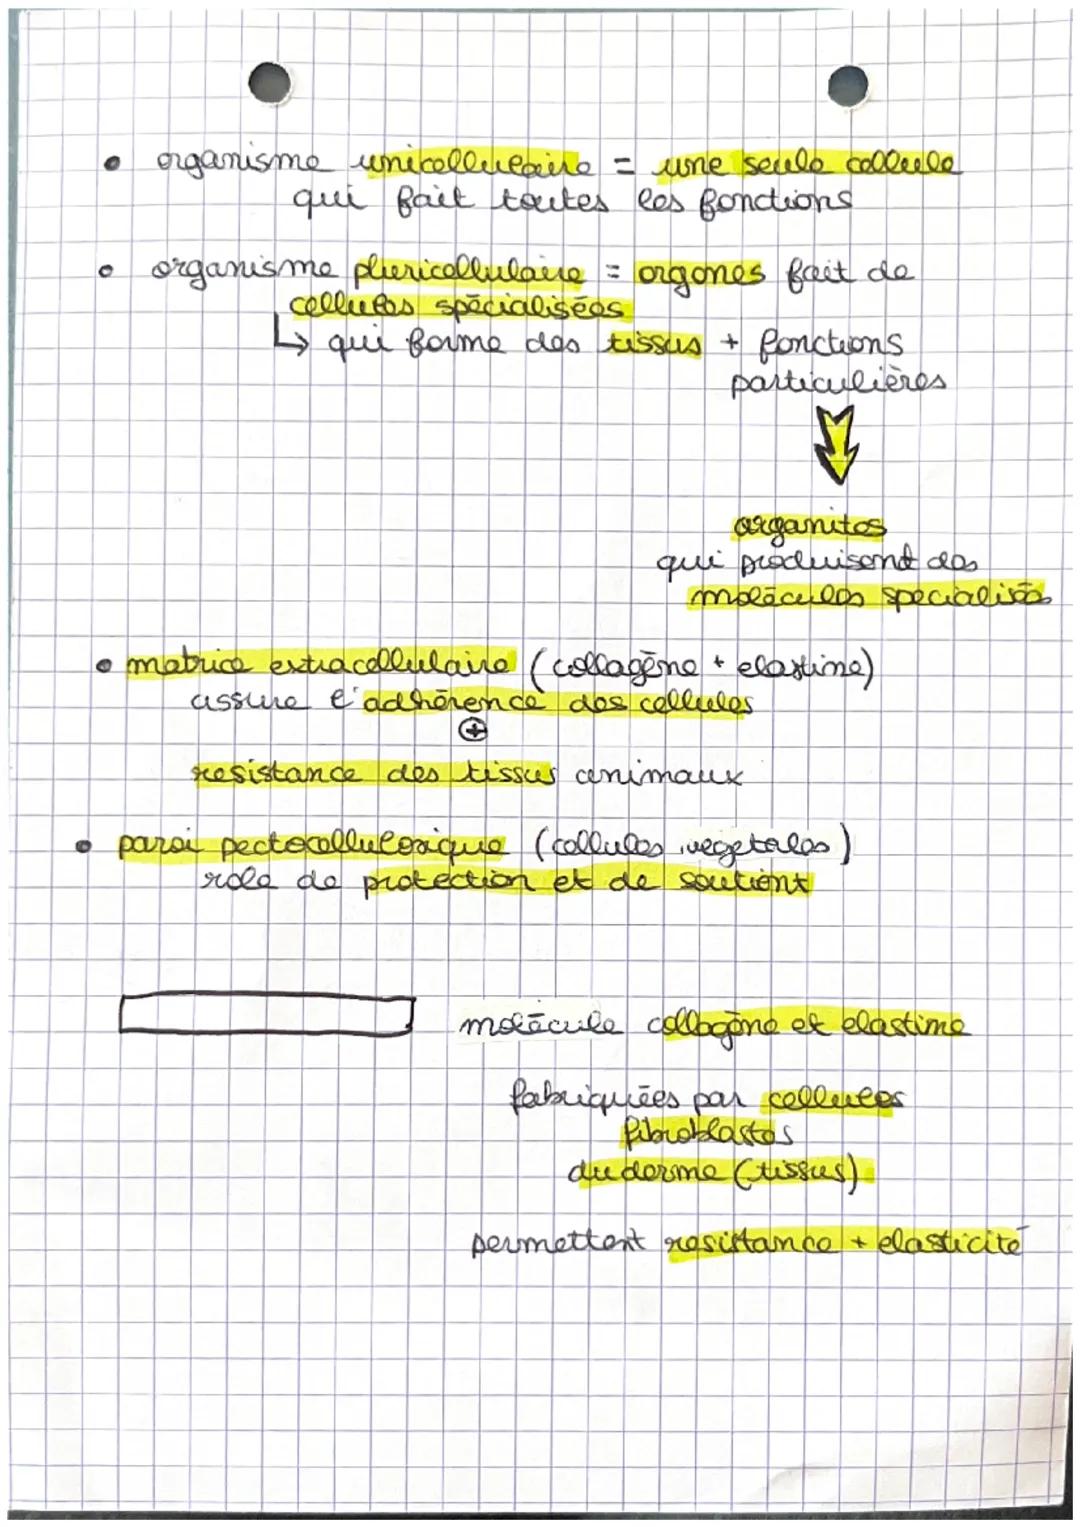 • organisme unicellulaire = une seule cellule
qui fait toutes les fonctions
• organisme pluricellulaire = organes fait de
cellules spécialisées
↳ qui forme des tissus + fonctions
particulières
organites
qui produisent des
molécules specialisés
• matrice extracellulaire (collagène + elastine)
assure l'adhérence des cellules
⊕
resistance des tissus animaux
• paroi pectocellulosique (cellules vegetales)
role de protection et de soutient
molécule collagène et elastine
fabriquées par cellules
fibroblastes
du derme (tissus)
permettent resistance + elasticité